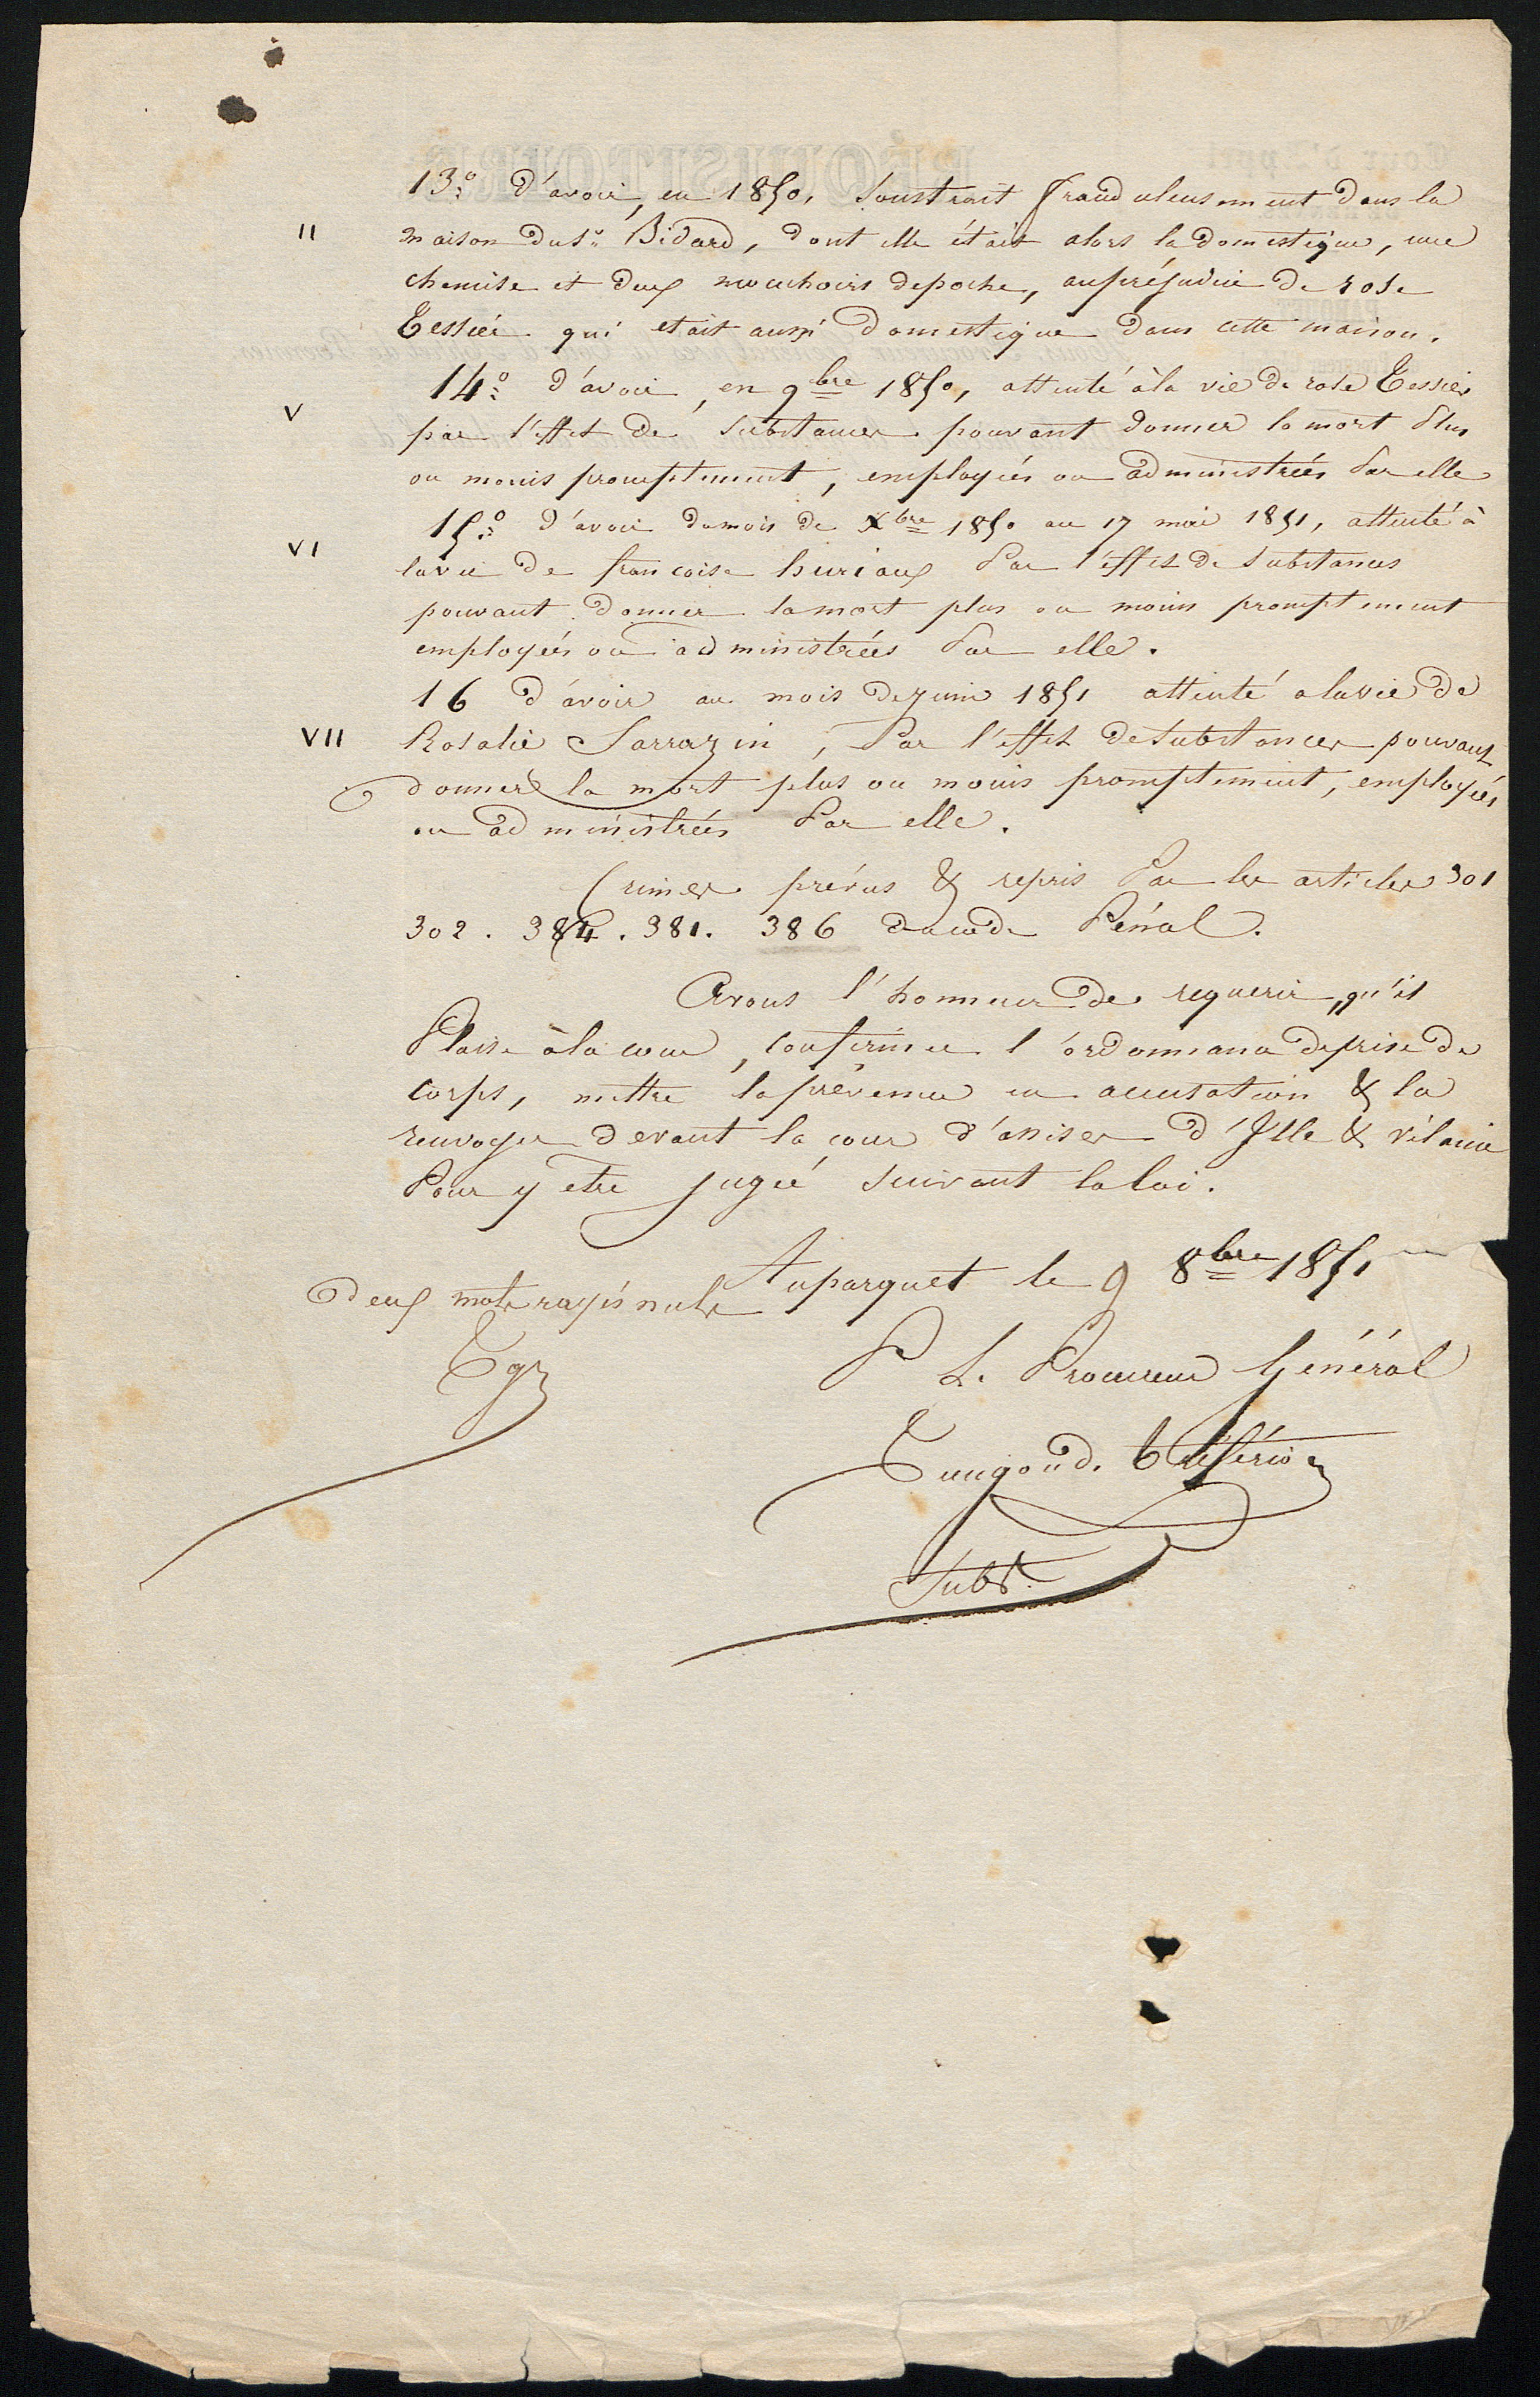 13.° d'avoir, en 1850, soustrait frauduleusement dans la
II
maison du Sr. Bidard, dont elle était alors la domestique, une
chemise et deux mouchoirs de poche, au préjudice de rose
Tessier qui etait aussi domestique dans cette maison.
14.° d'avoir, en 9bre 1850, attenté à la vie de rose Tessier
V
par l'effet de substances pouvant donner la mort plus
ou moins promptement, employées ou administrées par elle
15.° d'avoir du mois de Xbre 1850 au 17 mai 1851, attenté à
VI
la vie de francoise huriaux par l'effet de substances
pouvant donner la mort plus ou moins promptement
employées ou administrées par elle.
16 d'avoir au mois de juin 1851 attenté a la vie de
VII
Rosalie Sarrazin, par l'effet de substances pouvant
donner la mort plus ou moins promptement, employées
ou administrées par elle.
Crimes prévus & repris par les articles 301
302. 384. 381. 386 du code Pénal.
Avons l'honneur de requerir, qu'il
Plaise à la cour, confirmer l'ordonnance de prise de
corps, mettre la prévenue en accusation & la
renvoyer devant la cour d'assises d'Ille & vilaine
Pour y etre jugée suivant la loi.
Au parquet le 9 8bre 1851
deux mots rayés nuls
P L. Procureur Général
Subst.